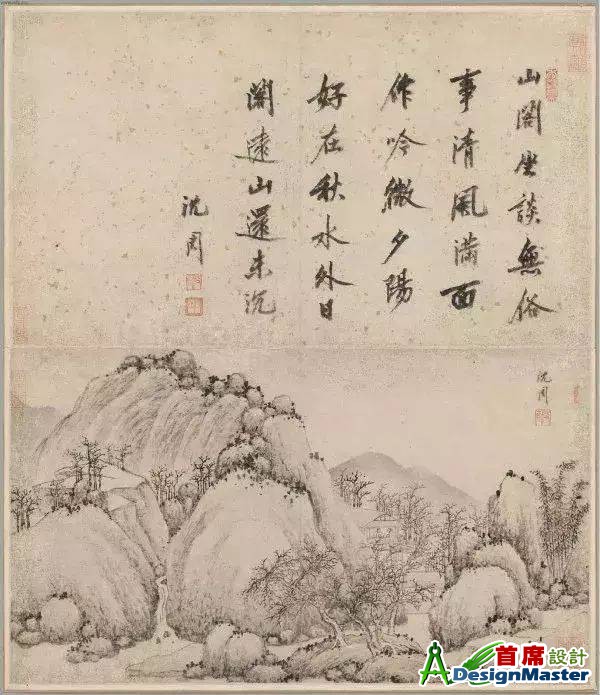 山閣坐談無俗
事清風滿面
作吟微夕陽
好在秋水外日
濶遠山還未沉
沈周
沈周
首席設計
DesignMaster